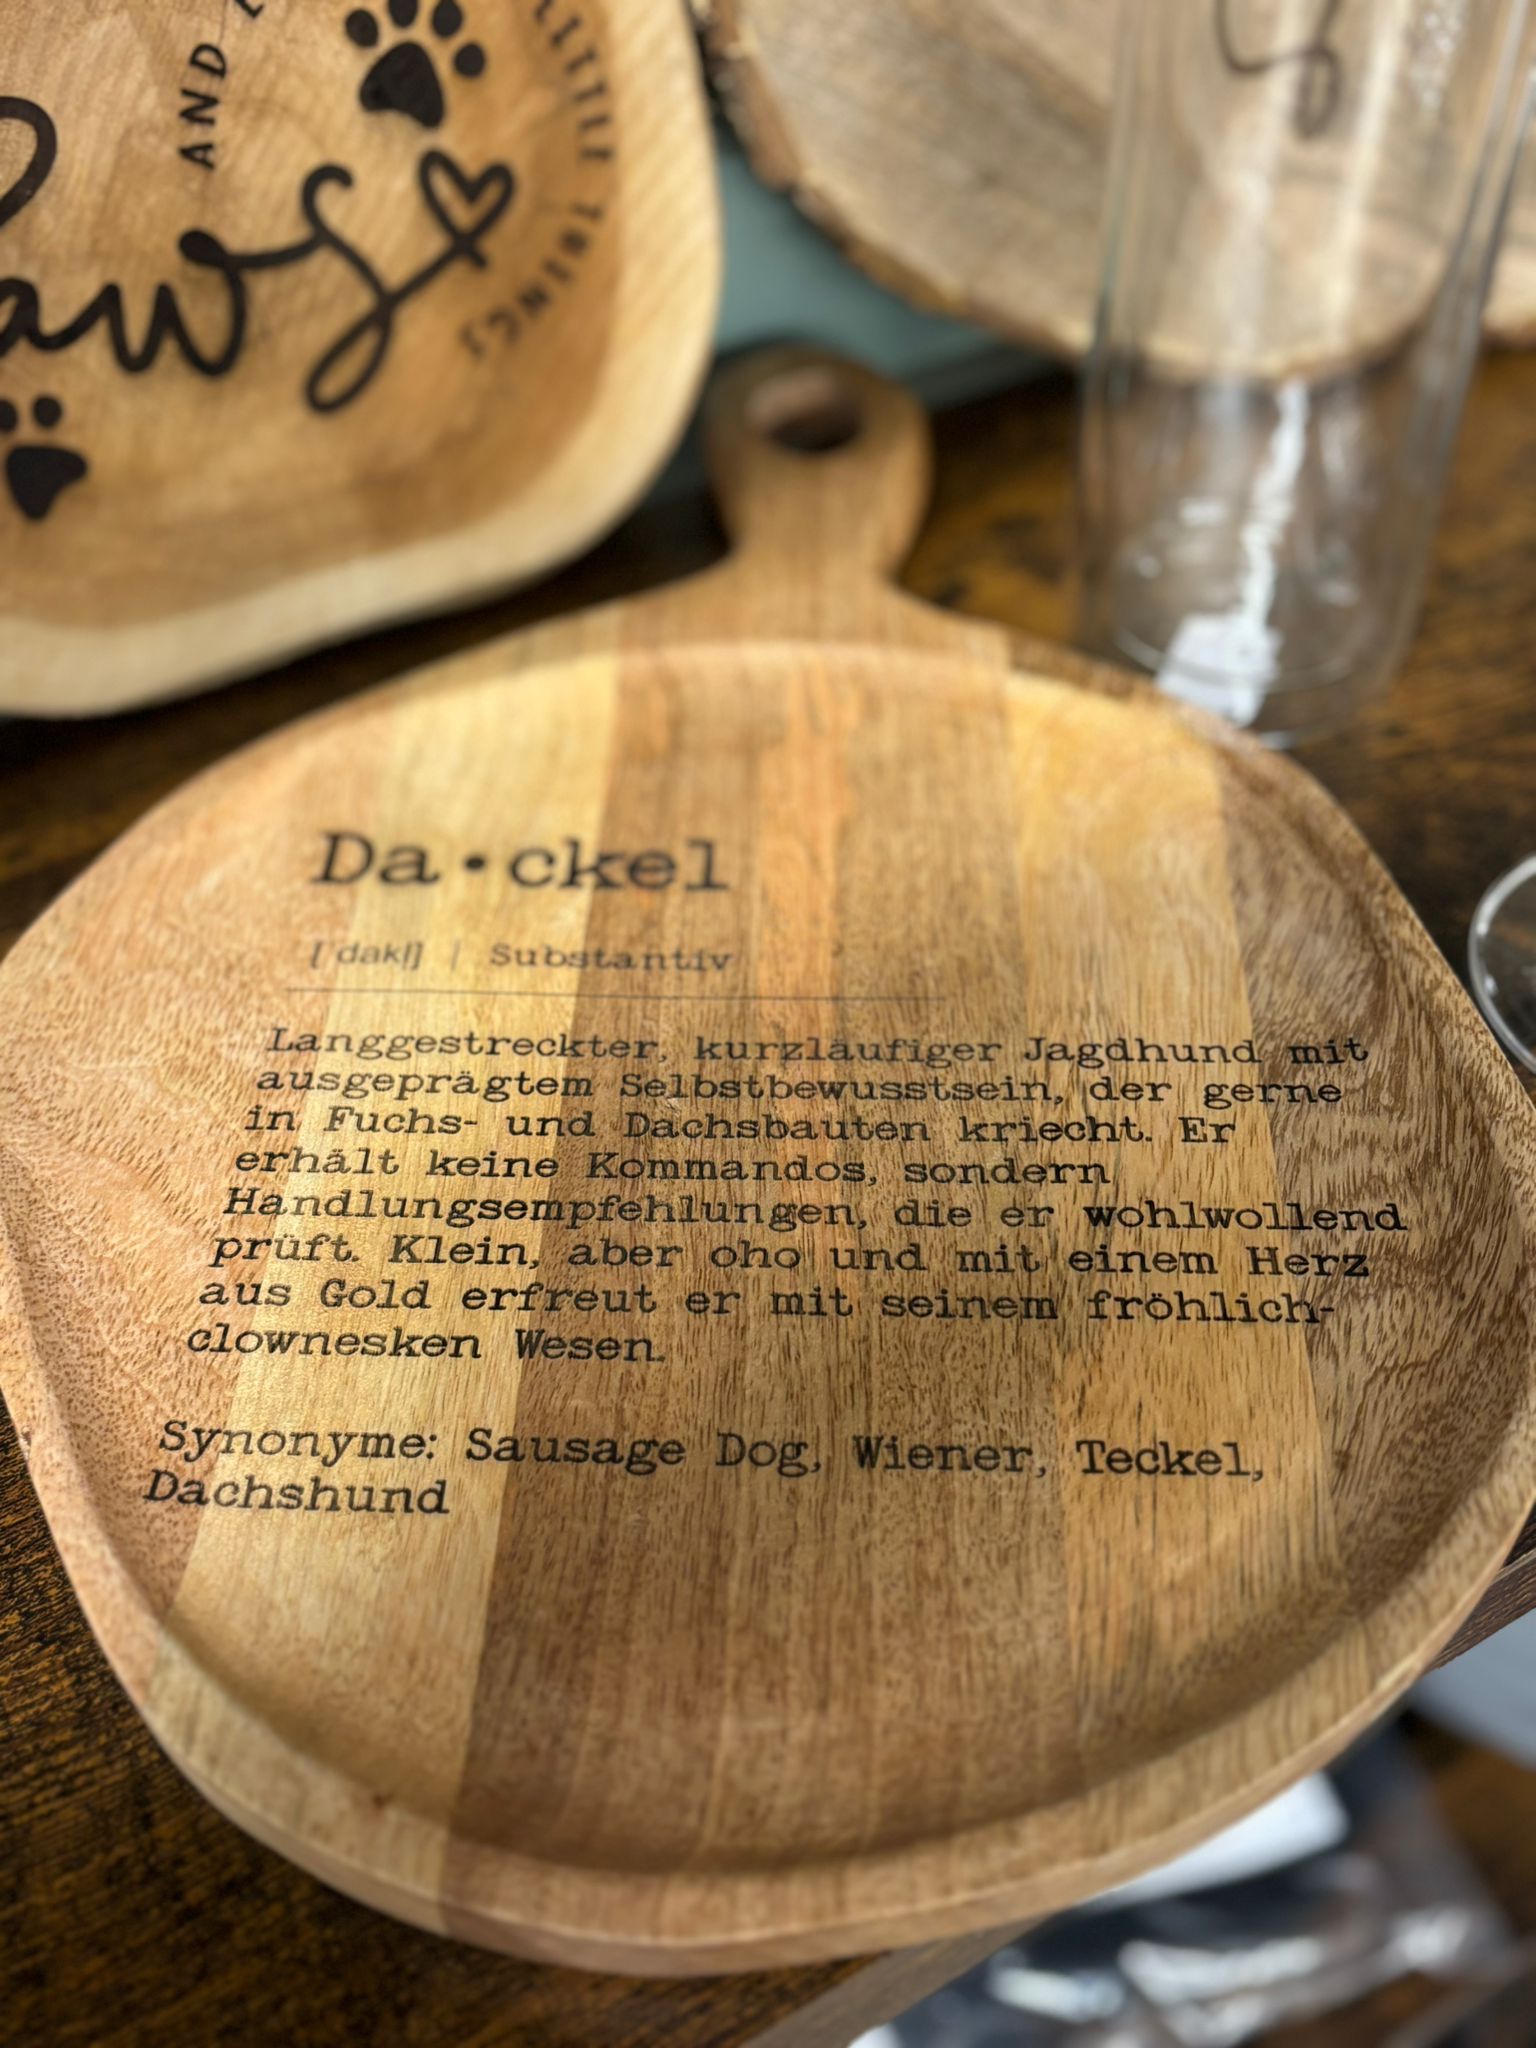 AND
LITTLE THINGS
Da•ckel
[ˈdakl̩] | Substantiv
Langgestreckter, kurzläufiger Jagdhund mit
ausgeprägtem Selbstbewusstsein, der gerne
in Fuchs- und Dachsbauten kriecht. Er
erhält keine Kommandos, sondern
Handlungsempfehlungen, die er wohlwollend
prüft. Klein, aber oho und mit einem Herz
aus Gold erfreut er mit seinem fröhlich-
clownesken Wesen.
Synonyme: Sausage Dog, Wiener, Teckel,
Dachshund